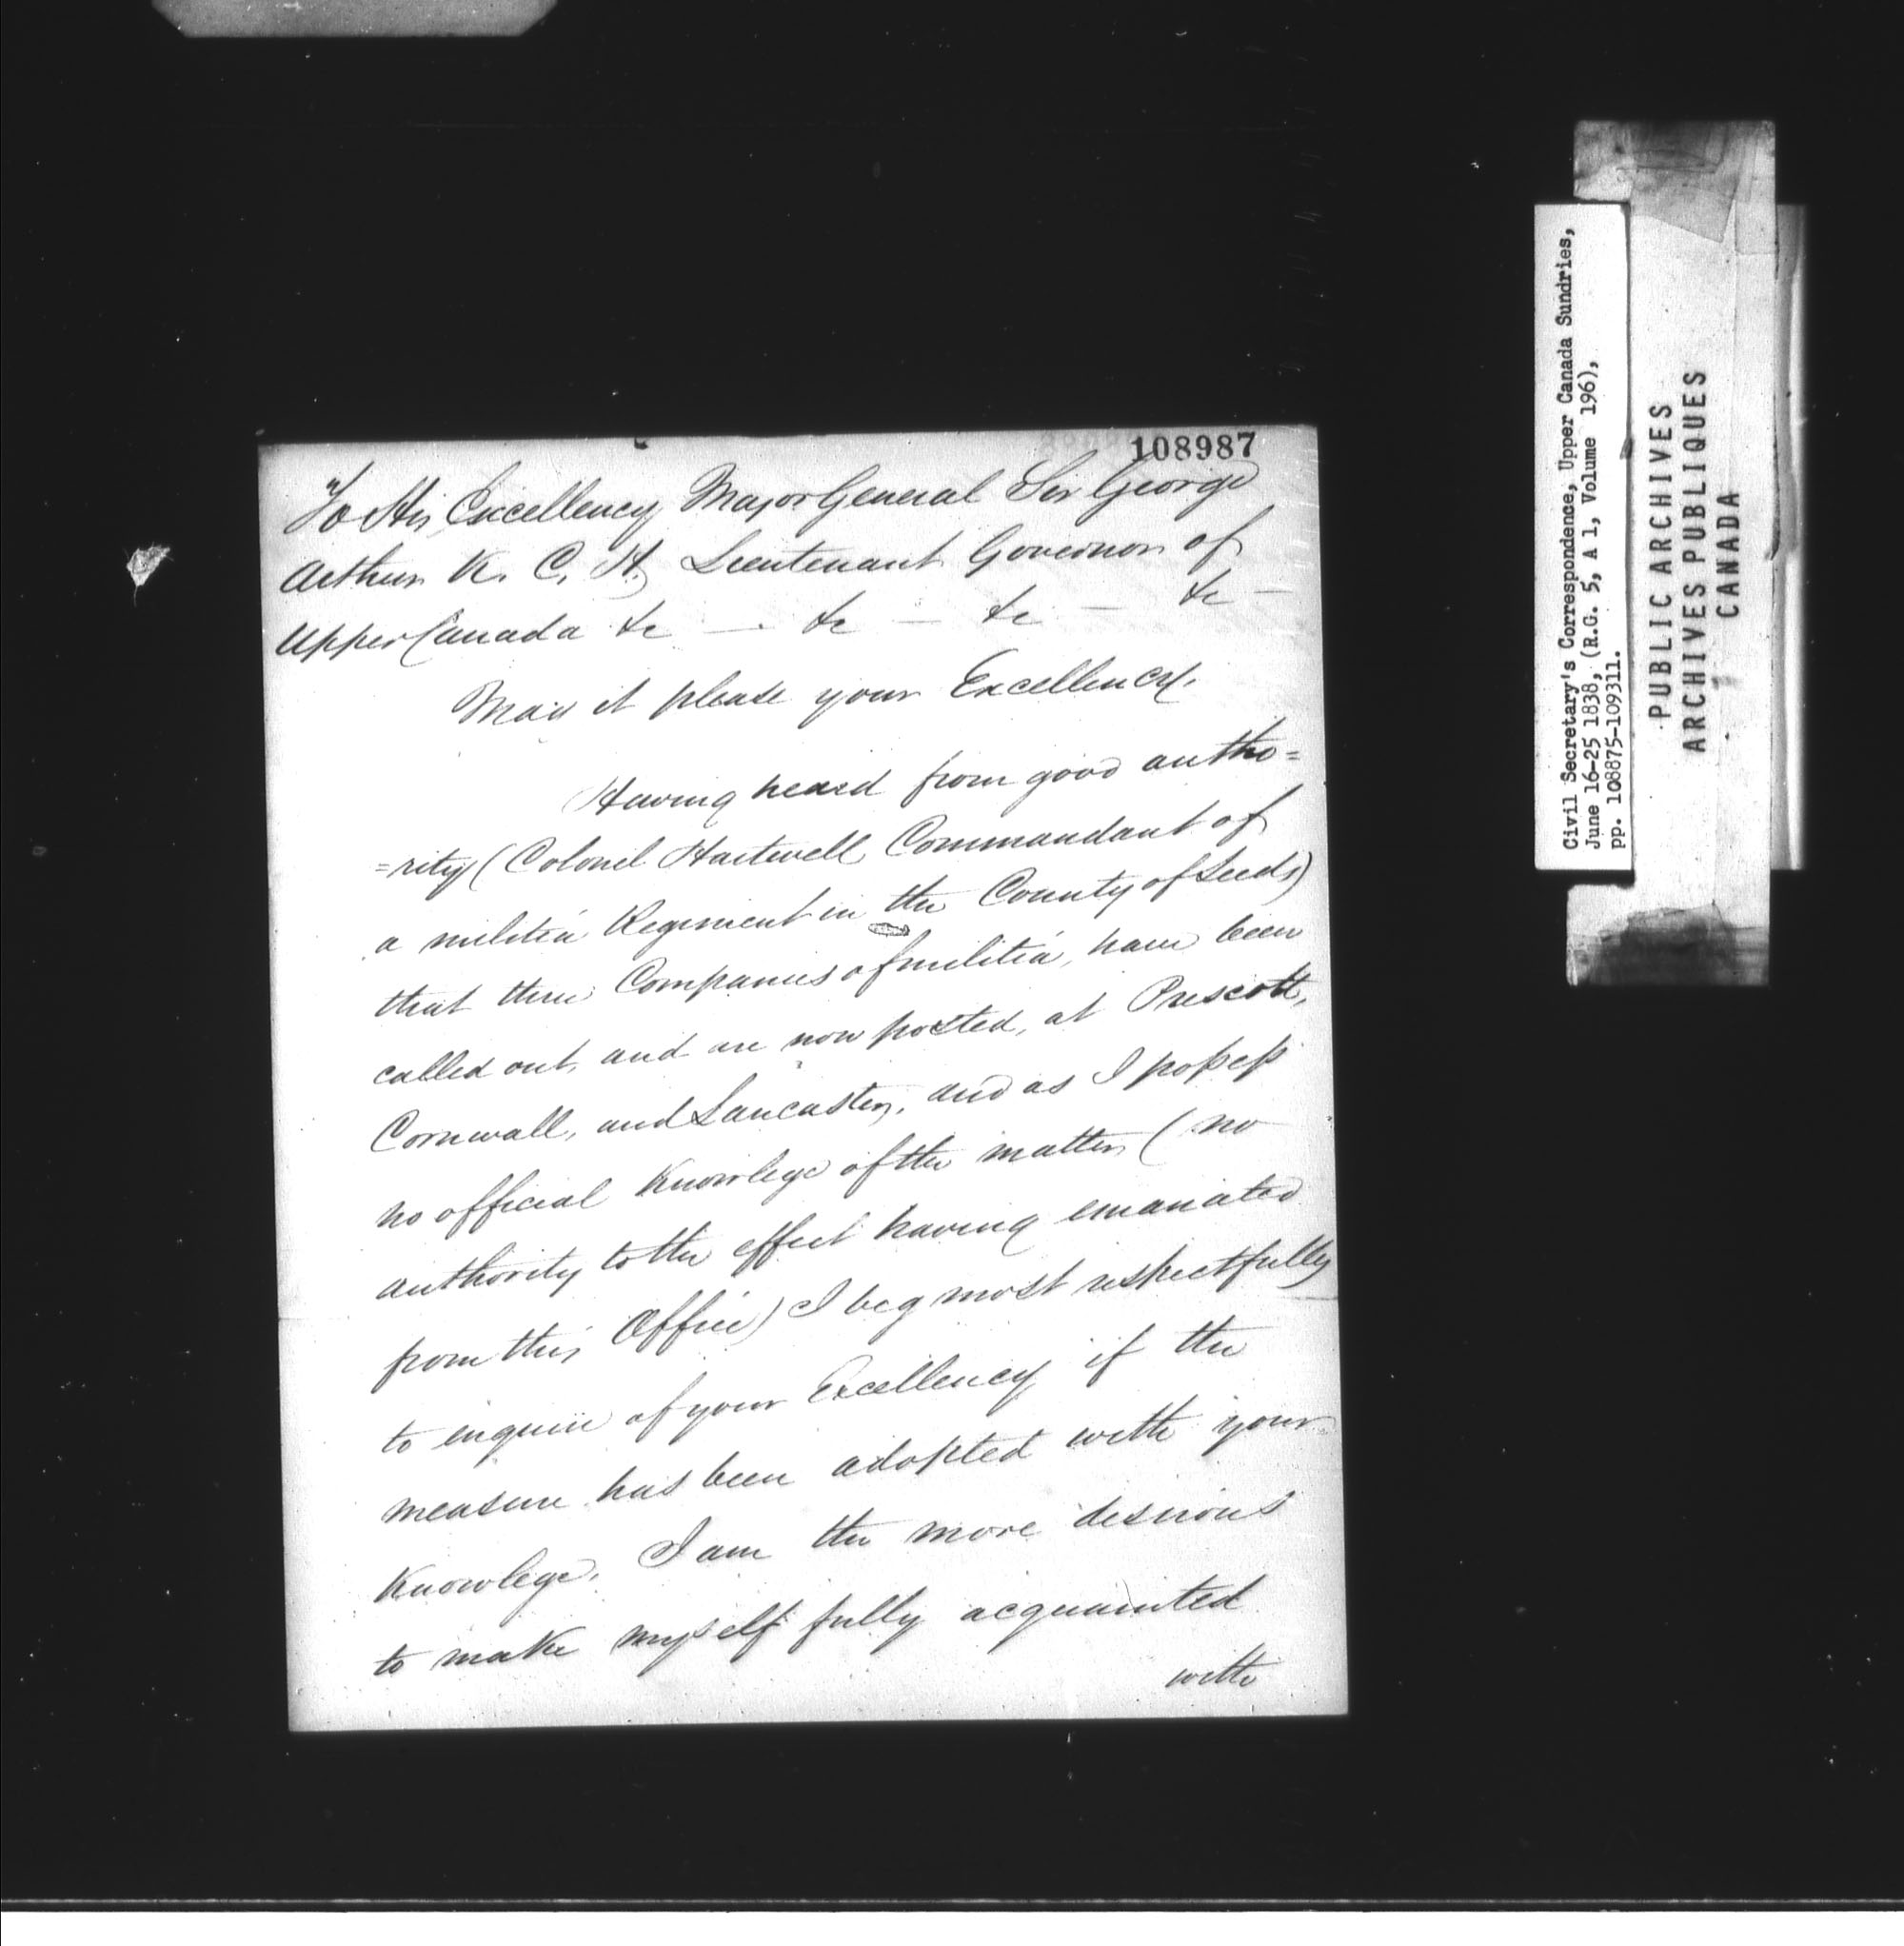 108987
To His Excellency Major General Sir George
Arthur K. C. H. Lieutenant Governor of
Upper Canada &c — &c — &c — &c —
May it please your Excellency,
Having heard from good autho=
=rity (Colonel Hartwell Commandant of
a militia Regiment in the County of Leeds)
that three Companies of militia, have been
called out, and are now posted, at Prescott,
Cornwall, and Lancaster, and as I possess
no official Knowlege of the matter (no
authority to the effect having emanated
from this Office) I beg most respectfully
to enquire of your Excellency if the
measure has been adopted with your
Knowlege. I am the more desirous
to make myself fully acquainted
with
Civil Secretary's Correspondence, Upper Canada Sundries,
June 16-25 1838, (R.G. 5, A 1, Volume 196),
pp. 108875-109311.
PUBLIC ARCHIVES
ARCHIVES PUBLIQUES
CANADA